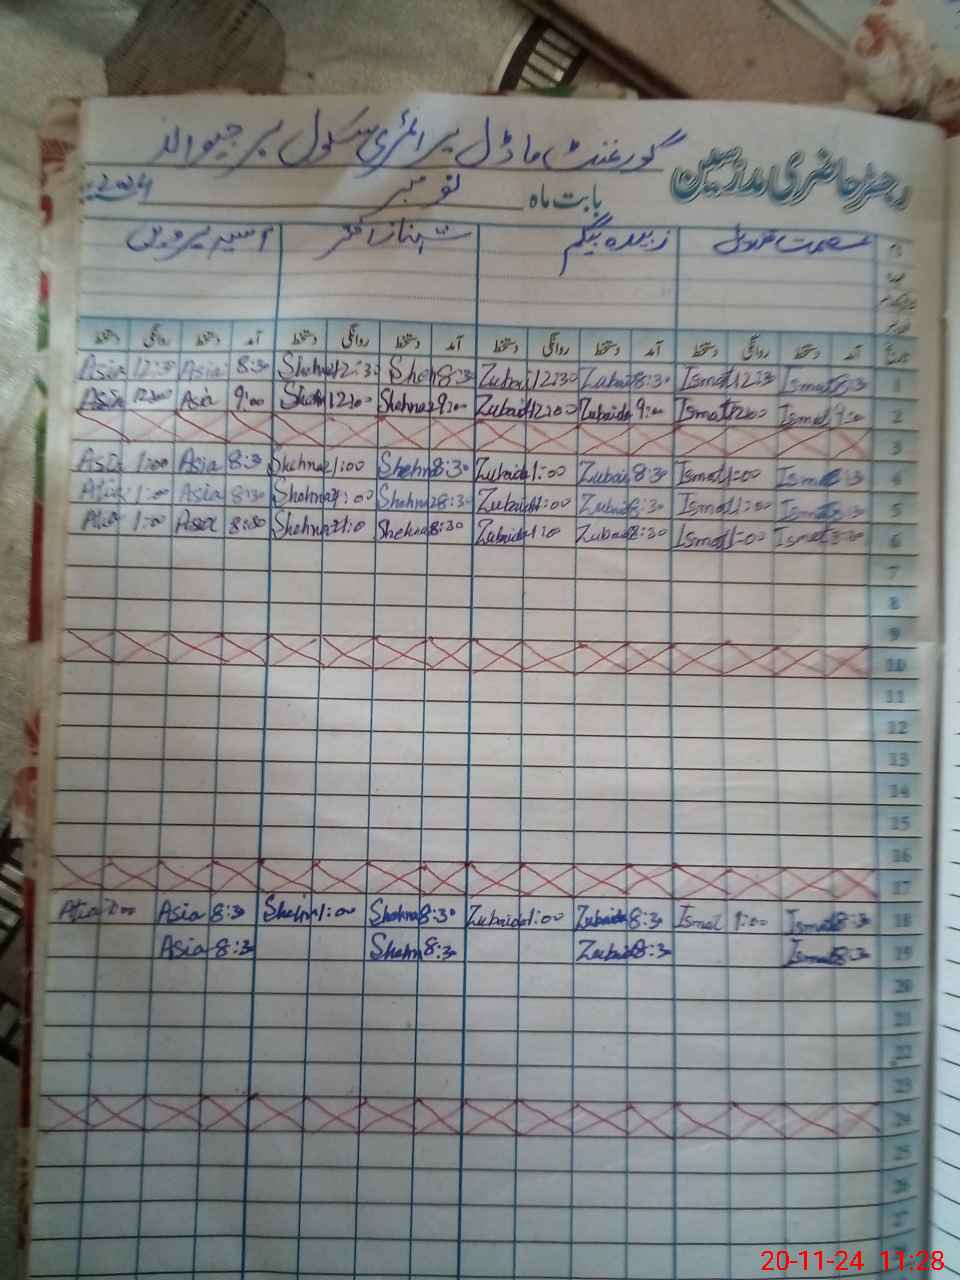 رجسٹر حاضری مدرسین گورنمنٹ ماڈل پرائمری سکول
بابت ماہ نومبر 2024
عصمت زبیدہ بیگم شہناز اختر آسیہ پروین
آمد دستخط روانگی دستخط آمد دستخط روانگی دستخط آمد دستخط روانگی دستخط آمد دستخط روانگی دستخط
Asia 12:30 Asia 8:30 Shehna 12:30 Sheh 8:30 Zubai 12:30 Zubai 8:30 Ismat 12:30 Ismat 8:30 1
Asia 12:00 Asia 9:00 Sheh 12:00 Shehna 9:00 Zubaid 12:00 Zubaida 9:00 Ismat 12:00 Ismat 9:00 2
3
Asia 1:00 Asia 8:3 Shehnaz 1:00 Shehn 8:30 Zubaida 1:00 Zubai 8:30 Ismat 1:00 Ismat 8:3 4
Asia 1:00 Asia 8:30 Shehnaz 1:00 Shehnaz 8:30 Zubaida 1:00 Zubai 8:30 Ismat 1:00 Ismat 8:3 5
Asia 1:00 Asia 8:30 Shehnaz 1:0 Shehna 8:30 Zubaida 1:0 Zubai 8:30 Ismat 1:00 Ismat 8:30 6
7
8
9
10
11
12
13
14
15
16
17
Asia 1:00 Asia 8:30 Shehn 1:00 Shehna 8:30 Zubaida 1:00 Zubaida 8:30 Ismat 1:00 Ismat 8:30 18
Asia 8:30 Shehn 8:30 Zubaid 8:30 Ismat 8:30 19
20
21
22
23
24
25
26
27
20-11-24 11:28